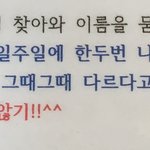 찾아와 이름을 묻
일주일에 한두번 나
그때그때 다르다고
않기!!^^